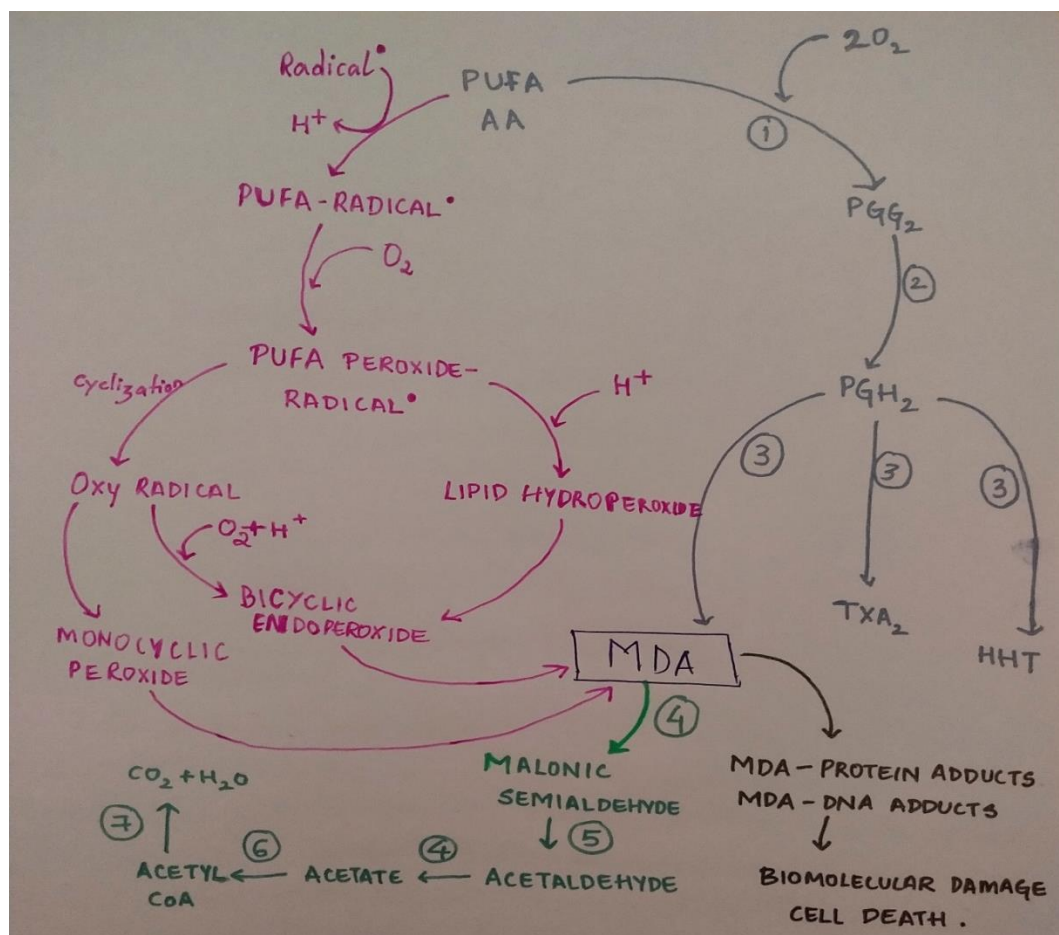 Radical•
H+
PUFA
AA
2O2
①
PUFA-RADICAL•
O2
PGG2
②
PUFA PEROXIDE-
RADICAL•
cyclization
H+
PGH2
③
③
③
OXY RADICAL
O2+H+
LIPID HYDROPEROXIDE
BICYCLIC
ENDOPEROXIDE
MONOCYCLIC
PEROXIDE
MDA
TXA2
HHT
④
MALONIC
SEMIALDEHYDE
⑤
ACETALDEHYDE
④
ACETATE
⑥
ACETYL
CoA
⑦
CO2+H2O
MDA-PROTEIN ADDUCTS
MDA-DNA ADDUCTS
BIOMOLECULAR DAMAGE
CELL DEATH.